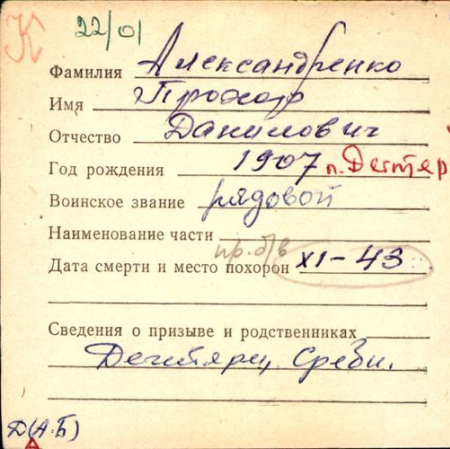 К
22/01
Фамилия Александренко
Имя Прохор
Отчество Данилович
Год рождения 1907 п. Дегтяр
Воинское звание рядовой
Наименование части
пр. б/в
Дата смерти и место похорон XI-43
Сведения о призыве и родственниках
Дегтяри, Сребн.
Д(А.Б)
А